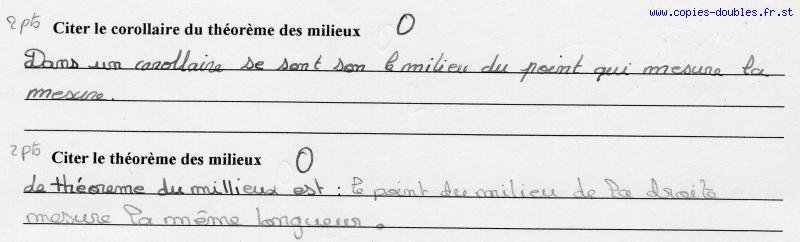 www.copies-doubles.fr.st
2 pts Citer le corollaire du théorème des milieux 0
Dans un corollaire se sont son le milieu du point qui mesure la
mesure.
2 pts Citer le théorème des milieux 0
le théoreme du millieux est : le point du milieu de la droite
mesure la même longueur.